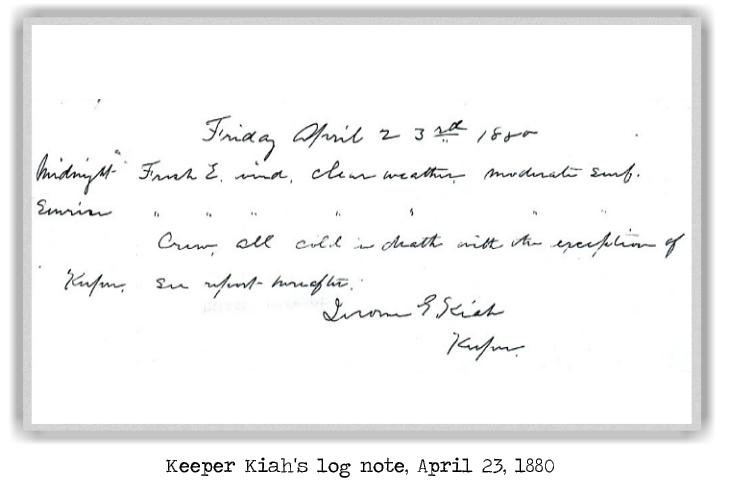 Friday April 23rd 1880
Midnight Fresh E. wind, clear weather, moderate surf.
Sunrise " " " " " " "
Crew, all cold in death with the exception of
Keeper. See report hereafter.
Jerome G Kiah
Keeper.
Keeper Kiah's log note, April 23, 1880